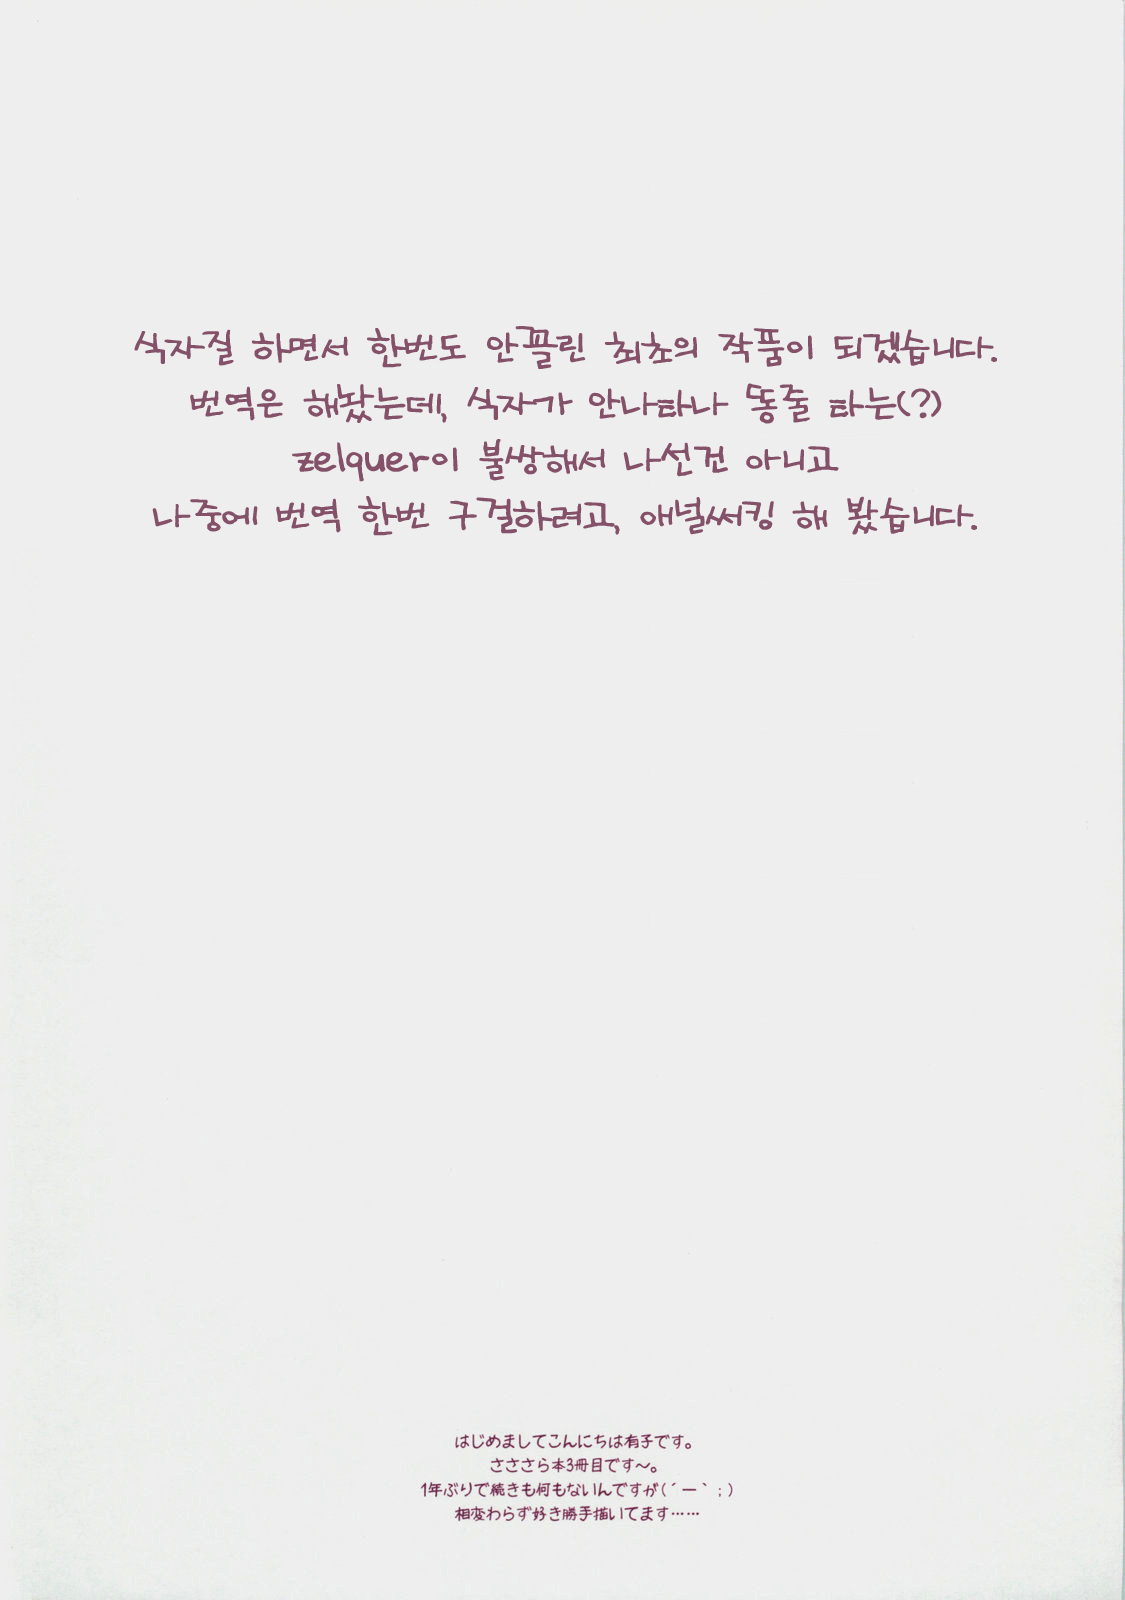 식자질 하면서 한번도 안꼴린 최초의 작품이 되겠습니다.
번역은 해놨는데, 식자가 안나타나 똥줄 타는(?)
zelquer이 불쌍해서 나선건 아니고
나중에 번역 한번 구걸하려고, 애널써킹 해 봤습니다.
はじめましてこんにちは有子です。
さささら本3冊目です～。
1年ぶりで続きも何もないんですが(´ー｀；)
相変わらず好き勝手描いてます……